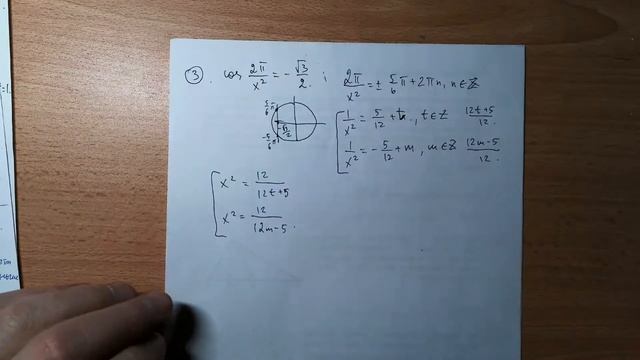 ③ cos 2π/x² = -√3/2 ; 2π/x² = ± 5/6 π + 2πn, n∈Z
5/6 π
-√3/2
-5/6 π
1/x² = 5/12 + t, t∈Z (12t+5)/12
1/x² = -5/12 + m, m∈Z (12m-5)/12
x² = 12/(12t+5)
x² = 12/(12m-5).